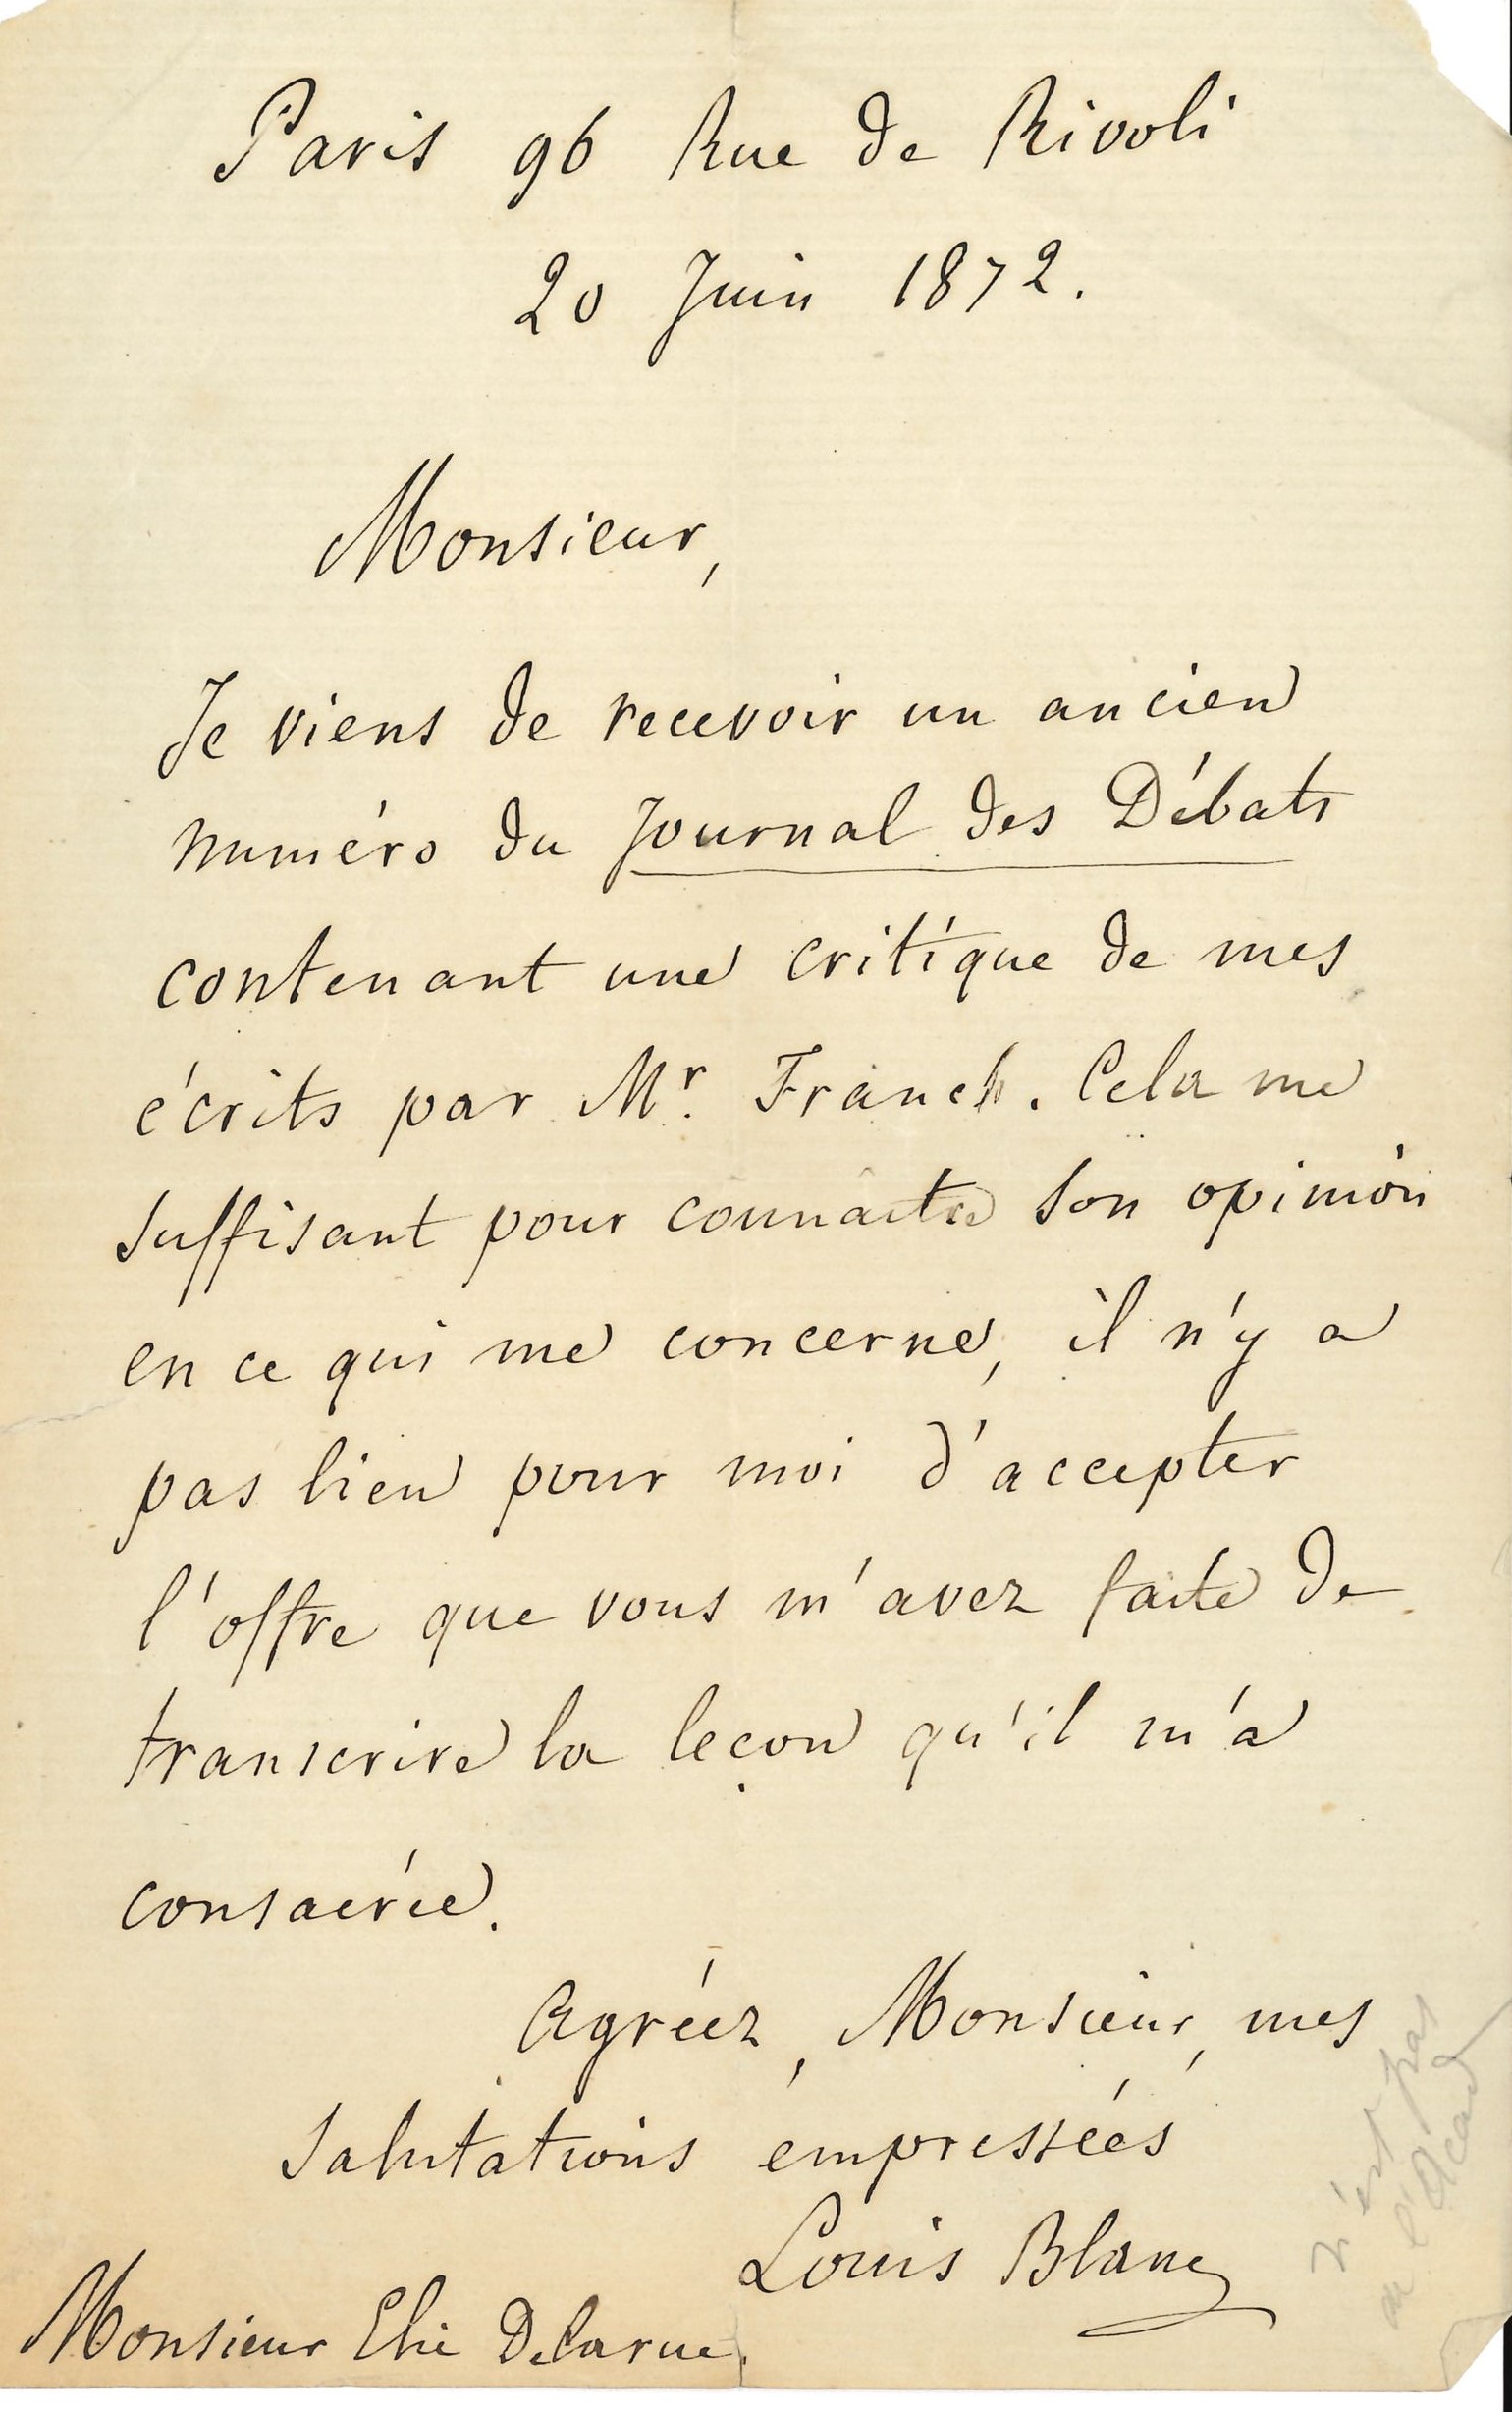 Paris 96 Rue de Rivoli
20 Juin 1872.
Monsieur,
Je viens de recevoir un ancien
numéro du Journal des Débats
contenant une critique de mes
écrits par Mr. Franck. Cela me
suffisant pour connaître son opinion
en ce qui me concerne, il n'y a
pas lieu pour moi d'accepter
l'offre que vous m'avez faite de
transcrire la leçon qu'il m'a
consacrée.
Agréez, Monsieur, mes
salutations empressées
Louis Blanc
Monsieur Elie Delarue.
n'est pas
de l'Acad